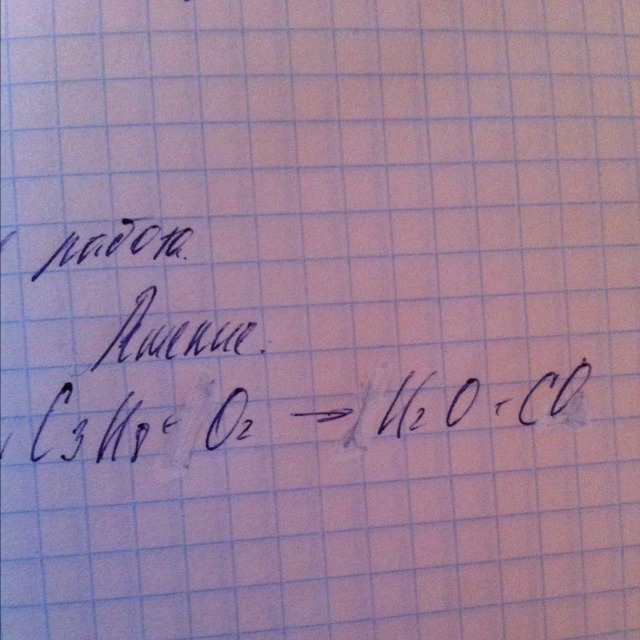 работа.
Решение.
C₃H₈ + O₂ → H₂O + CO